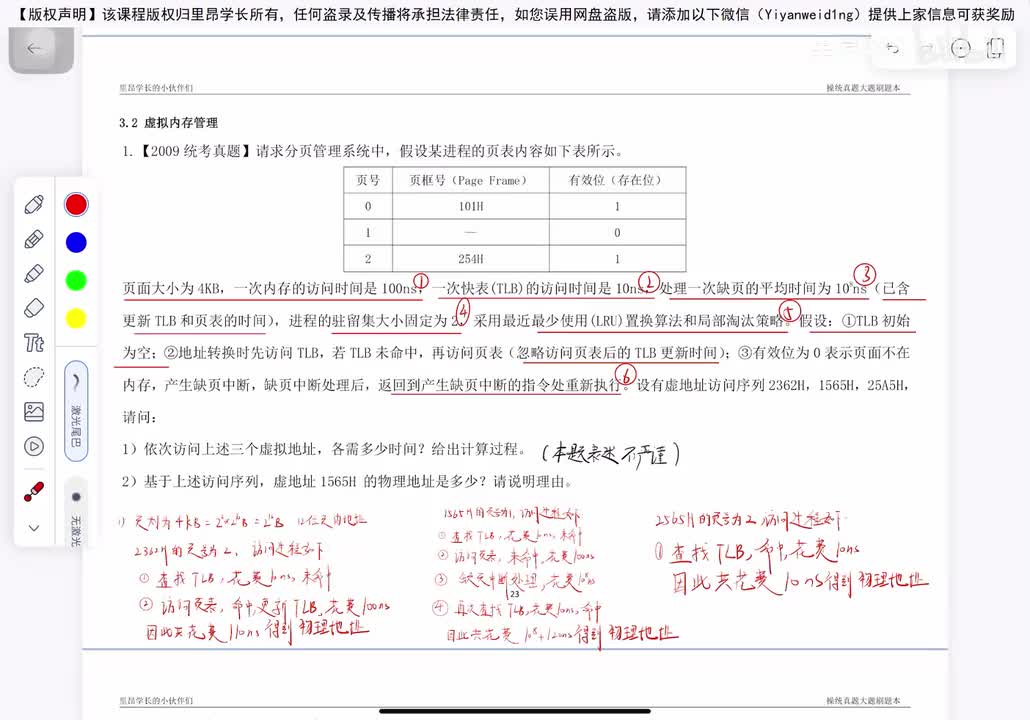 【版权声明】该课程版权归里昂学长所有，任何盗录及传播将承担法律责任，如您误用网盘盗版，请添加以下微信（Yiyanweid1ng）提供上家信息可获奖励
里昂学长的小伙伴们
操统真题大题刷题本
3.2 虚拟内存管理
1.【2009 统考真题】请求分页管理系统中，假设某进程的页表内容如下表所示。
页号 页框号（Page Frame） 有效位（存在位）
0 101H 1
1 — 0
2 254H 1
① ② ③
页面大小为 4KB，一次内存的访问时间是 100ns，一次快表(TLB)的访问时间是 10ns，处理一次缺页的平均时间为 10⁸ns（已含
④ ⑤
更新 TLB 和页表的时间），进程的驻留集大小固定为 2，采用最近最少使用(LRU)置换算法和局部淘汰策略。假设：①TLB 初始
为空；②地址转换时先访问 TLB，若 TLB 未命中，再访问页表（忽略访问页表后的 TLB 更新时间）；③有效位为 0 表示页面不在
⑥
内存，产生缺页中断，缺页中断处理后，返回到产生缺页中断的指令处重新执行。设有虚地址访问序列 2362H，1565H，25A5H，
请问：
1）依次访问上述三个虚拟地址，各需多少时间？给出计算过程。（本题表述不严谨）
2）基于上述访问序列，虚地址 1565H 的物理地址是多少？请说明理由。
1) 页大小为4KB = 2²×2¹⁰B = 2¹²B 12位是页内地址
2362H的页号为2，访问过程如下
① 查找TLB，花费10ns，未命中
② 访问页表，命中，更新TLB，花费100ns
因此共花费110ns得到物理地址
1565H的页号为1，访问过程如下
① 查找TLB，花费10ns，未命中
② 访问页表，未命中，花费100ns
③ 缺页中断处理，花费10⁸ns
23
④ 再次查找TLB，花费10ns，命中
因此共花费 10⁸+120ns得到物理地址
2565H的页号为2，访问过程如下
① 查找TLB，命中，花费10ns
因此共花费10ns得到物理地址
Tt
激光尾巴
无激光
里昂学长的小伙伴们
操统真题大题刷题本